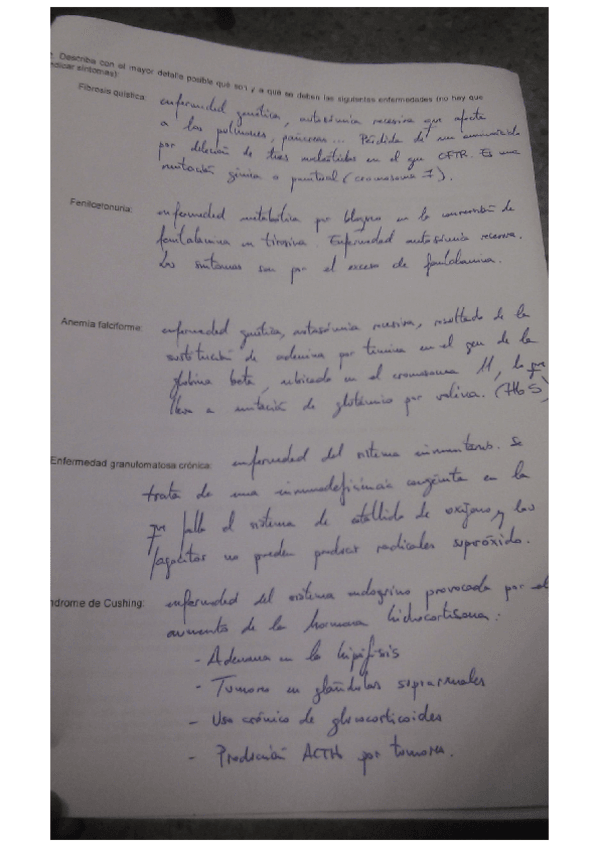 . Describa con el mayor detalle posible qué son y a qué se deben las siguientes enfermedades (no hay que
indicar síntomas):
Fibrosis quística: enfermedad genética, autosómica recesiva que afecta
a los pulmones, páncreas... Pérdida de un aminoácido
por deleción de tres nucleótidos en el gen CFTR. Es una
mutación génica o puntual (cromosoma 7).
Fenilcetonuria: enfermedad metabólica por bloqueo en la conversión de
fenilalanina en tirosina. Enfermedad autosómica recesiva.
Los síntomas son por el exceso de fenilalanina.
Anemia falciforme: enfermedad genética, autosómica recesiva, resultado de la
sustitución de adenina por timina en el gen de la
globina beta, ubicada en el cromosoma 11, lo que
lleva a mutación de glutámico por valina. (Hb S)
Enfermedad granulomatosa crónica: enfermedad del sistema inmunitario. Se
trata de una inmunodeficiencia congénita en la
que falla el sistema de estallido de oxígeno y los
fagocitos no pueden producir radicales superóxido.
ndrome de Cushing: enfermedad del sistema endogrino provocada por el
aumento de la hormona hidrocortisona:
- Adenoma en la hipófisis
- Tumores en glándulas suprarrenales
- Uso crónico de glucocorticoides
- Producción ACTH por tumores.